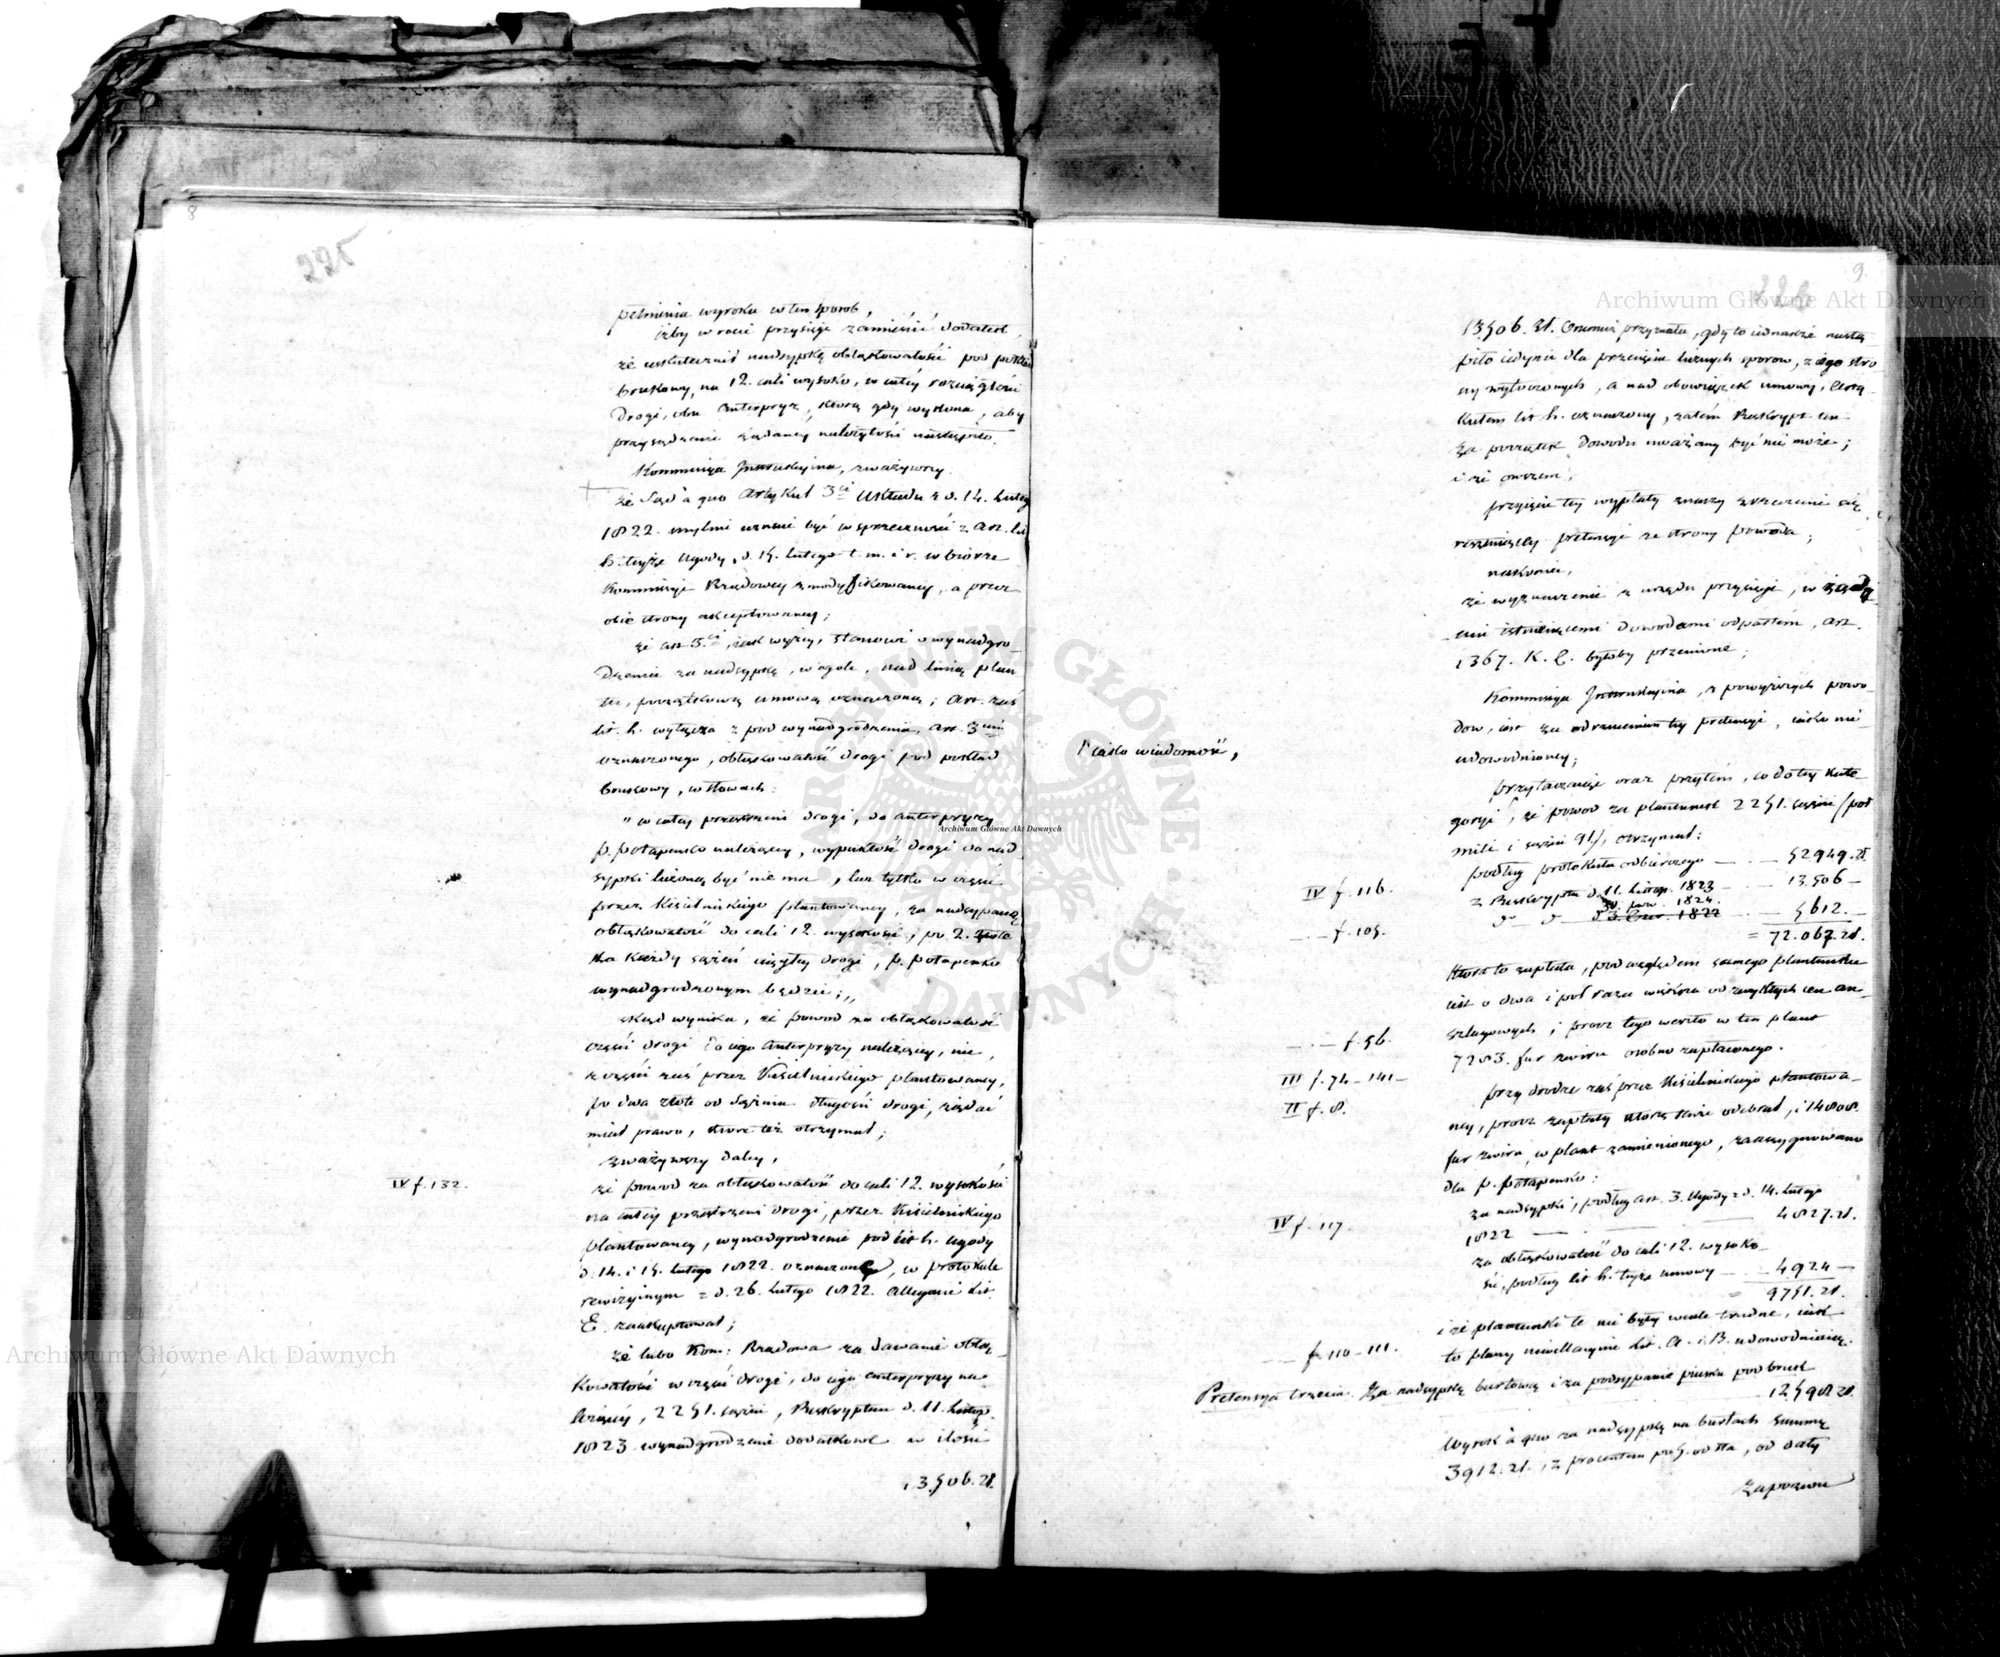 8
225
pełnienia wyroku w ten sposób,
iżby w rocie przysięgi zamieścić dodatek,
że uskutecznił nadsypkę obłąkowatości pod pokład
brukowy, na 12. cali wysoko, w całej rozciągłości
drogi, obu Anterpryz, którą gdy wykona, aby
przysądzenie żądanej należytości nastąpiło.
Kommissya Instrukcyjna, zważywszy
że Sąd a quo Artykuł 3ci Układu z d. 14. Lutego
1822. mylnie uznał być w sprzeczności z Art. lit.
h. tejże Ugody, d. 15. Lutego t. m. i r. w biórze
Kommissyi Rządowey zmodyfikowaney, a przez
obie strony akceptowaney;
że art 3ci, jak wyżey, stanowi o wynadgro-
dzeniu za nadsypkę, w ogóle, nad linią plan
tu, początkową umową oznaczoną; Art. zaś
lit. h. wyłącza z pod wynadgrodzenia, Art. 3cim
oznaczonego, obłąkowatość drogi pod pokład
brukowy, w słowach:
" w całey przestrzeni drogi, do Anterpryzy
p. Potapenko należącey, wypukłość drogi do nad
sypki liczoną być nie ma, lecz tylko w części
przez Kisielnickiego plantowaney, za nadsypaną
obłąkowatość do cali 12. wysokości, po 2. złote
na każdy sążeń bieżący drogi, p. Potapenko
wynadgrodzonym będzie; "
skąd wynika, że powod za obłąkowatość
części drogi do jego Anterpryzy należącey, nie,
z części zaś przez Kisielnickiego plantowaney,
po dwa złote od Sążnia długości drogi, żądać
miał prawo, które też otrzymał;
zważywszy daley,
IV f. 132.
że powod za obłąkowatość do cali 12. wysokości
na całey przestrzeni drogi, przez Kisielnickiego
plantowaney, wynadgrodzenie pod lit h. ugody
d. 14. i 15. Lutego 1822. oznaczone, w protokule
rewizyinym z d. 26. Lutego 1822. Allegacie Lit.
E. zaakceptował;
że lubo Kom: Rządowa za dawanie obłą-
kowatości w części drogi, do jego anterpryzy na-
leżącey, 2251. sążni, Reskryptem d. 11. Listop.
1823 wynadgrodzenie dodatkowe w ilości
13.506. zł.
9
226
13.506. zł. Onemuż przyznała, gdy to jednakże nastą
piło jedynie dla przecięcia licznych sporow, z jego stro
ny wytoczonych, a nad obowiązek umowy, Arty
kułem lit h. oznaczony, zatem Reskrypt ten
za początek dowodu uważany być nie może;
i że owszem,
przyjęcie tey wypłaty znaczy zrzeczenie się
reszty pretensyi ze strony powoda;
nakoniec,
że wyznaczenie z urzędu przysięgi, w żąda
niu istniejącemi dowodami odpartem, Art.
1367. K. C. byłoby przeciwne;
Kommissya Instrukcyjna, z powyższych powo-
dow, jest za odrzuceniem tey pretensyi, jako nie
udowodnioney;
Ciasło wiadomość,
przytaczając oraz przytem, co do tey kate
goryi, że powod za plantunek 2251. sążni (poł
mili i sążni 91.), otrzymał:
podług protokułu odbiorczego — — 52949. zł.
IV f. 116. z Reskryptu d. 11. Listop. 1823 — — 13.506 —
30. paz. 1824.
— f. 105. do do d 3 Czer. 1822 — — 5612. —
= 72.067. zł.
która to zapłata, pod względem samego plantunku
jest o dwa i poł raza większa od zwykłych cen an-
szlagowych, i prócz tego weszło w ten plant
— f. 56. 7283. fur żwiru osobno zapłaconego.
III f. 74 – 141 – przy drodze zaś przez Kisielnickiego plantowa-
II f. 8. ney, prócz zapłaty którą tenże odebrał, i 14808.
fur żwiru, w plant zamienionego, zaassygnowano
dla p. Potapenko:
za nadsypki, podług art. 3. Ugody z d. 14. Lutego
IV f. 117. 1822 — — — 4827. zł.
za obłąkowatość do cali 12. wysoko-
ści, podług lit h. tejże umowy — — 4924 —
= 9751. zł.
i że plantunki te nie były wcale trudne, jak
— f. 110 – 111. to plany niwellacyine Lit. A. i B. udowodniają.
Pretensya trzecia. Za nadsypkę burtową i za podsypanie piasku pod bruk
12.598 zł.
Wyrok a quo za nadsypkę na burtach summę
3912. zł. i z procentem po 5. od sta, od daty
zapozwu
Archiwum Główne Akt Dawnych
Archiwum Główne Akt Dawnych
Archiwum Główne Akt Dawnych
ARCHIWUM GŁÓWNE AKT DAWNYCH